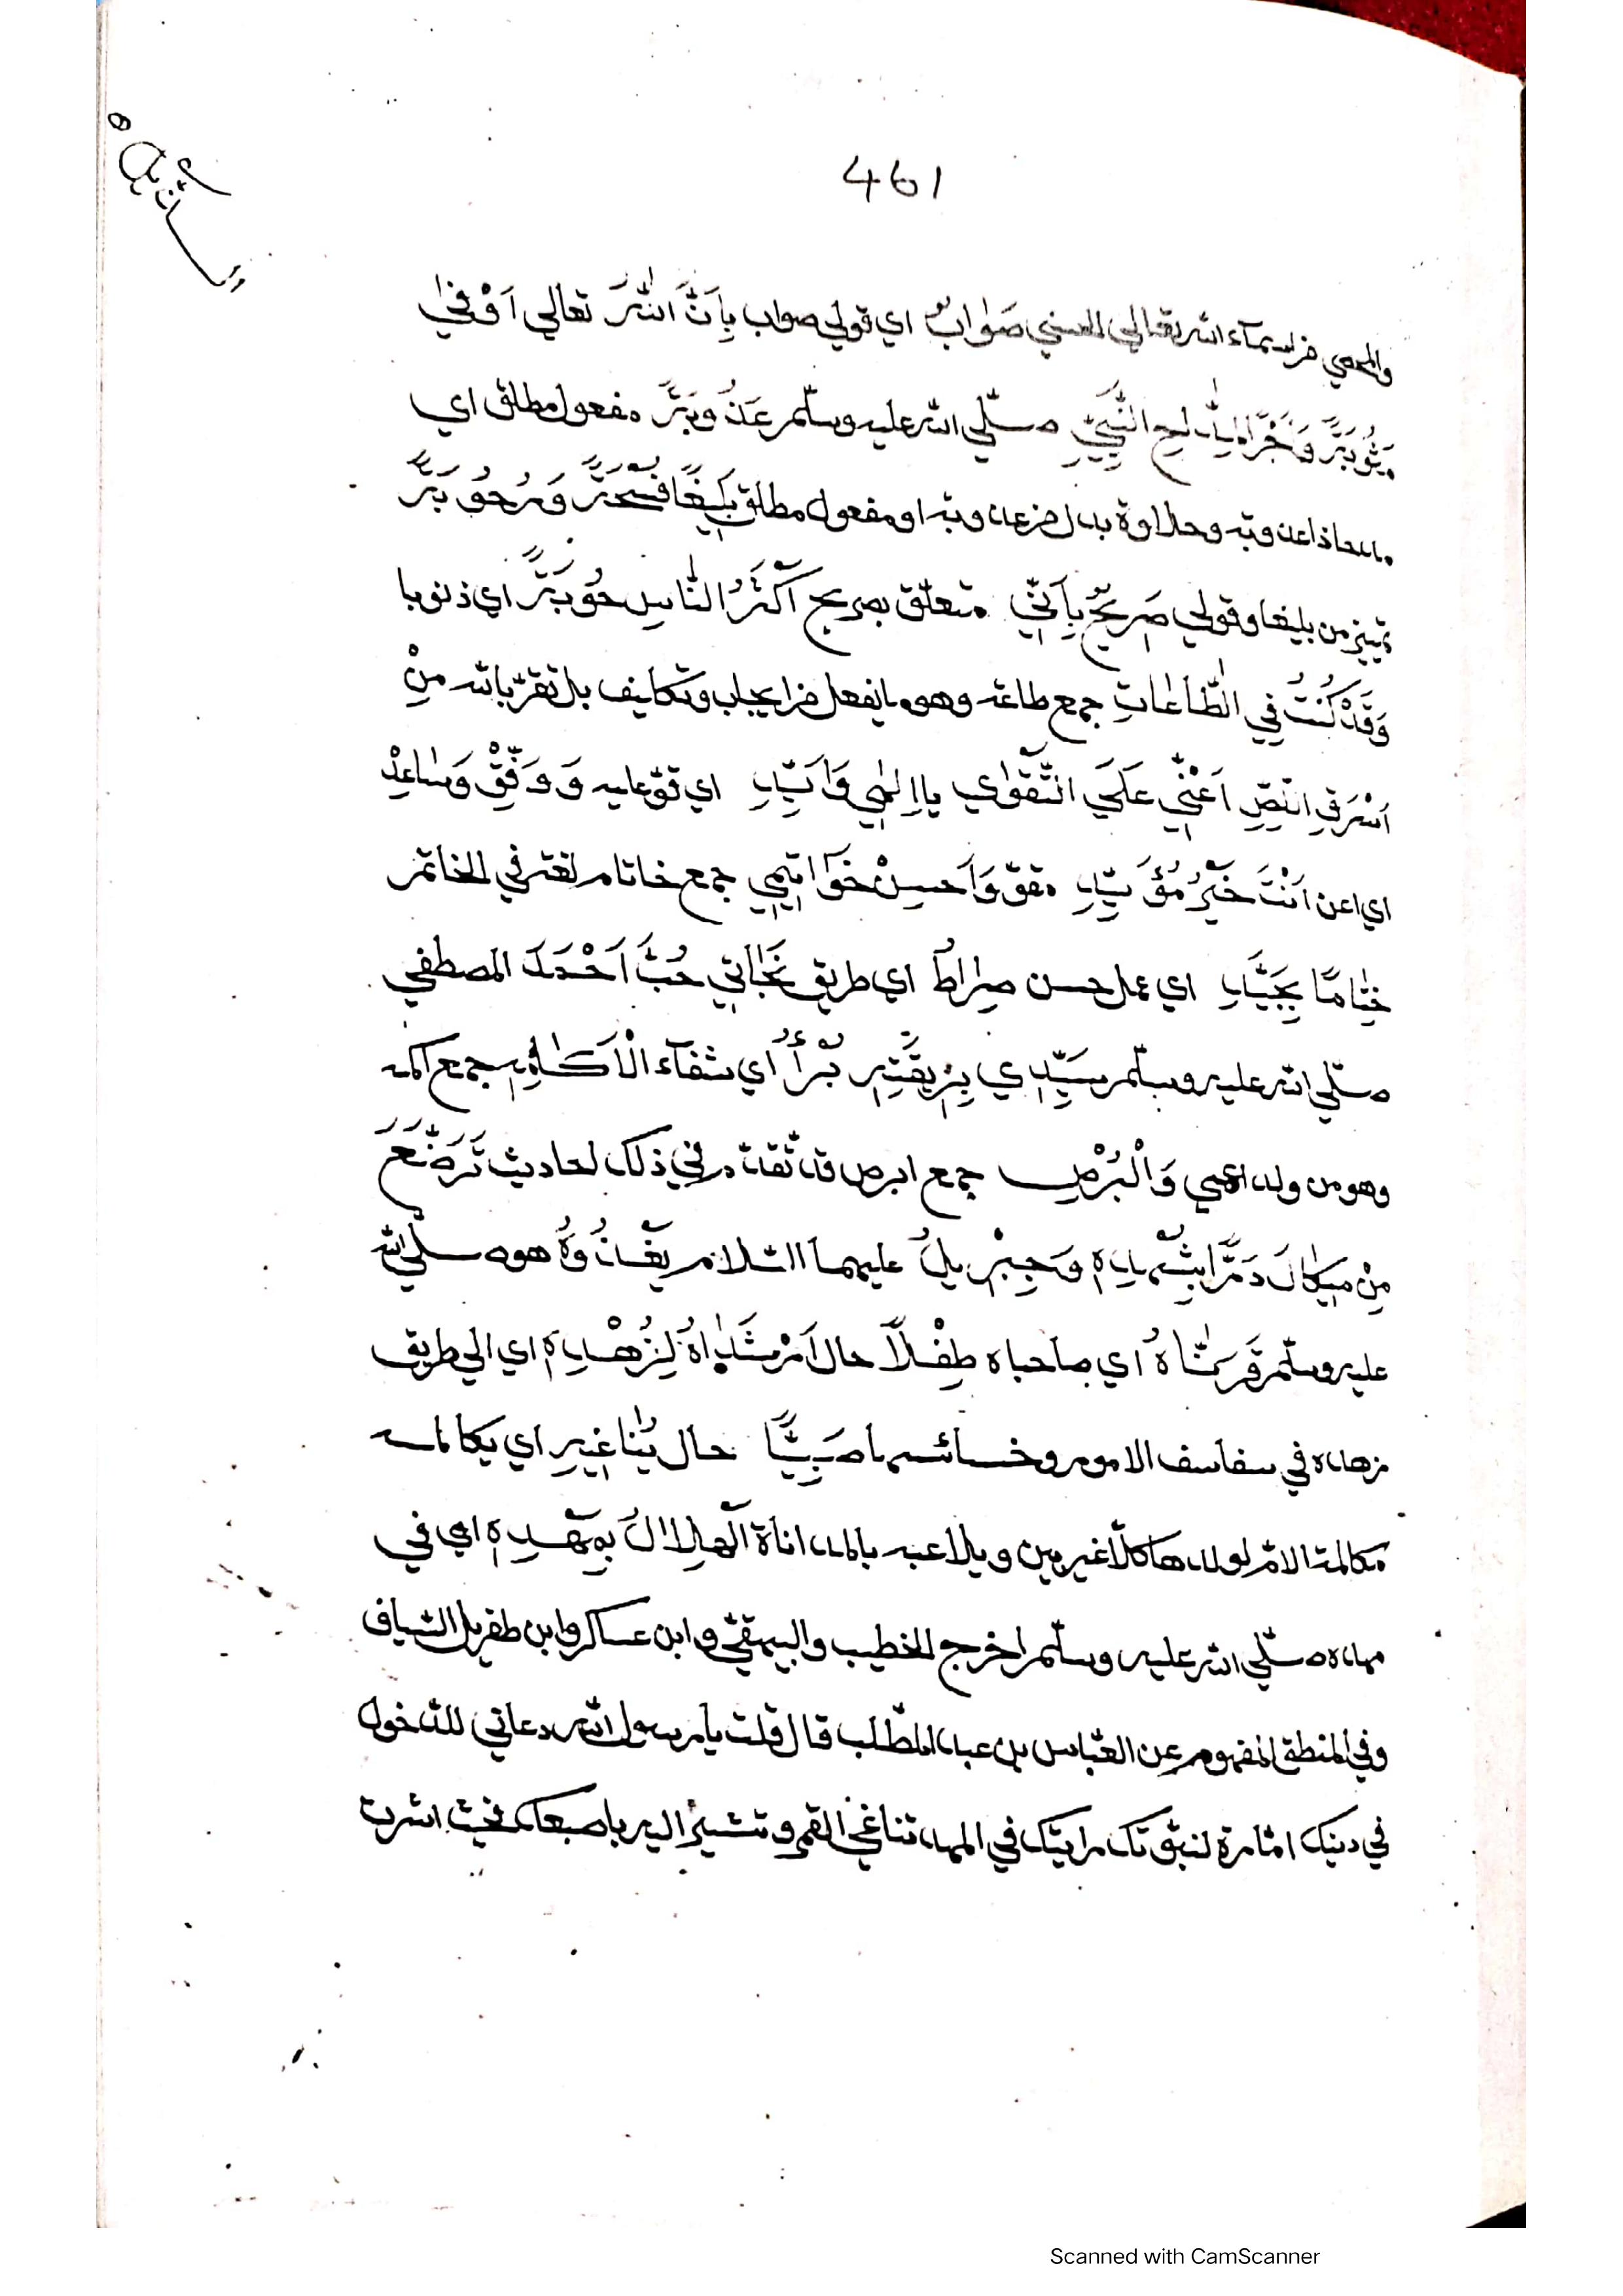 461
والمحصي من اسماء الله تعالى الحسني صَوَابٌ اي قولي صواب بِاَنَّ اللهَ تعالي اَوْفَيٰ
مَثُوبَةً وَاَجْرًا لِمَادِحِ النَّبِيِّ صلّي الله عليه وسلّم عَذُوبَةً مفعول مطلق اي
عذوبة وحلاوة بدل من عذوبة او مفعول مطلق بَلِيغًا
تمييز من بليغا وقولي صَرِيحٌ بِاَنِّي متعلّق بصريح اَكْثَرُ النَّاسِ حُوبَةً اي ذنوبا
وَقَدْ كُنْتُ فِي الطَّاعَاتِ جمع طاعة وهو ما يفعل من ايجاب وتكليف بل تقرّبا لله مِنْ
اَسْرَقِ النَّصِّ اَعْنِّي عَلَيَ التَّقْوٰي يا اِلٰهِي وَاَيِّدِ اي قوّ عليه وَ وَفِّقْ وَسَاعِدْ
اي اعن اَنْتَ خَيْرُ مُؤَيِّدِ مقوّ وَاَحْسِنْ خَوَاتِيمِي جمع خاتام لغة في الخاتم
خِتَامًا بِجَيِّدِ اي عمل حسن صِرَاطُ اي طريق نَجَاتِي حُبُّ اَحْمَدَ المصطفي
صلّي الله عليه وسلّم سَيِّدِي بِرِيقَتِهِ بُرْأُ اي شفآء الْاَكَامِهِ جمع اكمه
وهو من ولد اعمي وَالْبُرْصِ جمع ابرص قد ثقدّم في ذلك احاديث تَرَضَّعَ
مِنْ مِيكَالَ دَرًّا بِثَدْيِهِ وَجِبْرِيلُ عليهما السّلام يَغْذُوهُ هو صلّي الله
عليه وسلّم قَرِينَاهُ اي صاحباه طِفْلًا حال اَرْشَدَاهُ لِزُهْدِهِ اي الي طريق
زهده في سفاسف الامور وخسائسها صَبِيًّا حال يُنَاغِيهِ اي يكالمه
مكالمة الامّ لولدها كلّا غير بين ويلاعبه بالمداناة الْهِلَالُ بِمَهْدِهِ اي في
مهده صلّي الله عليه وسلّم اخرج الخطيب والبيهقيّ وابن عساكر وابن طغربك السّيّاف
وفي المنطق المفهوم عن العبّاس بن عبد المطّلب قال قلت يا رسول الله دعاني للدّخول
في دينك امّارة لنبوّتك رايتك في المهد تناغي القمر وتشير اليه باصبعك فحيث اشرت
Scanned with CamScanner